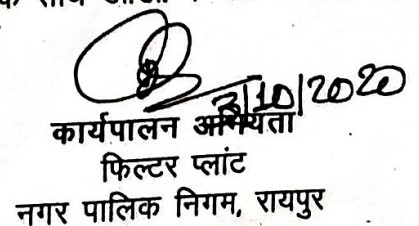 के साथ
3/10/2020
कार्यपालन अभियंता
फिल्टर प्लांट
नगर पालिक निगम, रायपुर